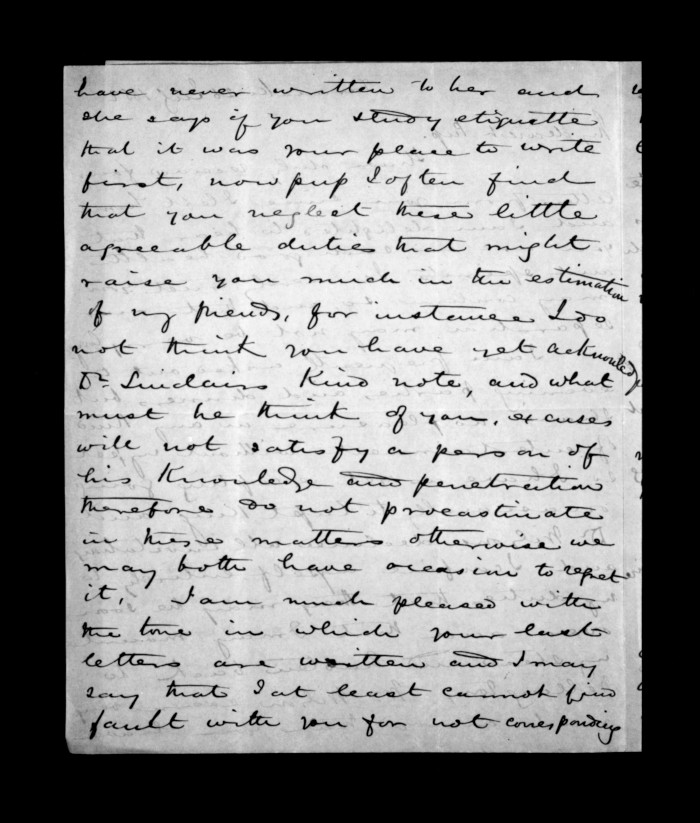 have never written to her and
she says if you study etiquette
that it was your place to write
first, now pup I often find
that you neglect these little
agreeable duties that might
raise you much in the estimation
of my friends, for instance I do
not think you have yet acknowledg
Dr Sinclairs Kind note, and what
must he think of you, excuses
will not satisfy a person of
his Knowledge and penetration
therefore do not procrastinate
in these matters otherwise we
may both have occasion to regret
it. I am much pleased with
the tone in which your last
letters are written and I may
say that I at least cannot find
fault with you for not corresponding